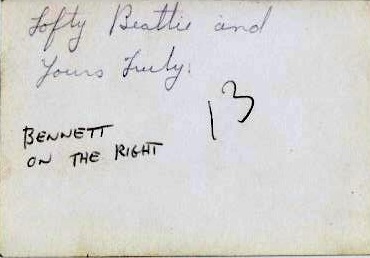 Lofty Beattie and
Yours Truly.
13
BENNETT
ON THE RIGHT